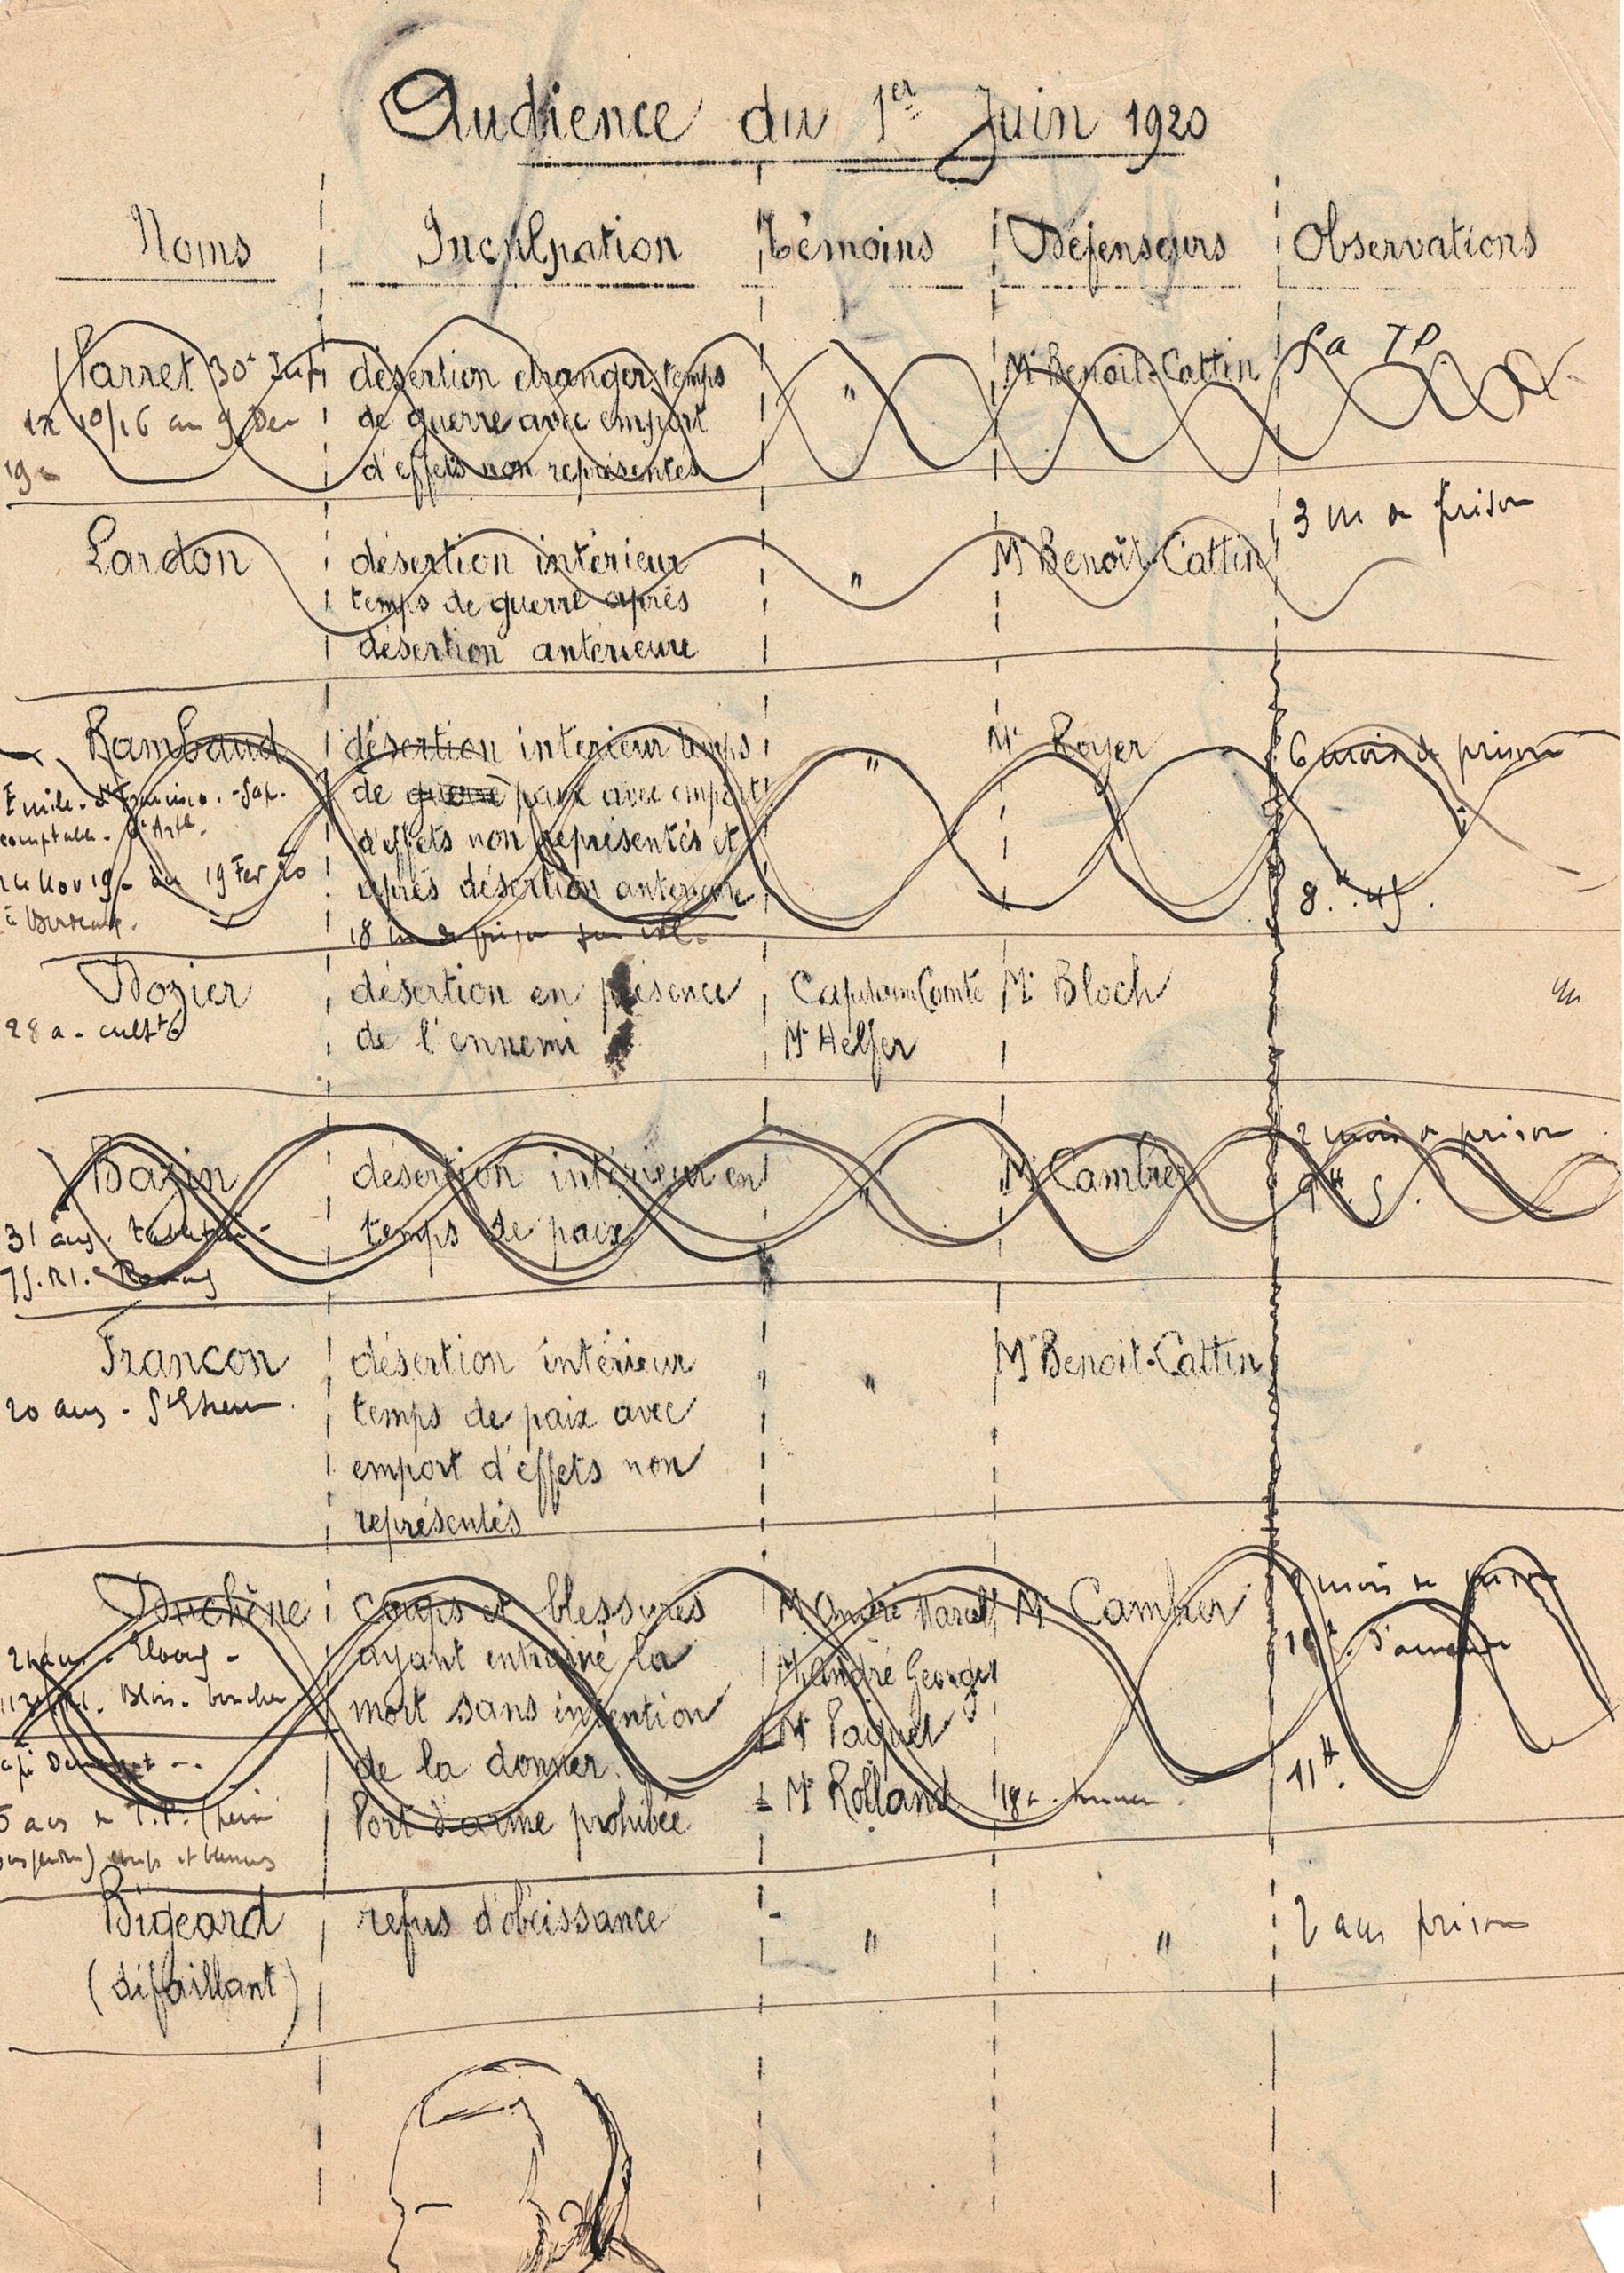 Audience du 1er Juin 1920
Noms Inculpation Témoins Défenseurs Observations
Parret 30e Inf désertion étranger temps " Me Benoît-Cattin 5a TP
10/16 au 9 Dec de guerre avec emport
19 d'effets non représentés
3 m de prison
Lardon désertion intérieur " Me Benoît-Cattin
temps de guerre après
désertion antérieure
Rambaud désertion intérieur temps " Me Royer 6 mois de prison
Emile. St Francisco. de guerre paix avec emport
comptable. d'effets non représentés et
Nov 19 au 19 Fev 20 après désertion antérieure 8.
à Bordeaux. 18 m de prison
Dozier désertion en présence Capitaine Comte Me Bloch
28 a. cultr de l'ennemi Mr Helfer
Bazin désertion intérieur en " Me Cambier 2 mois de prison
31 ans. temps de paix 9H.
75. R.I.
Francon désertion intérieur " Me Benoît-Cattin
20 ans. St Etienne. temps de paix avec
emport d'effets non
représentés
Duchêne coups et blessures Mr André Marcel Me Cambier mois de prison
ayant entraîné la Mr André Georges d'amende
Blois. boucher mort sans intention Mr Paquet
de la donner. Mr Rolland 11H.
5 ans de T.P. Port d'arme prohibée
coups et blessures
Bigeard refus d'obéissance " " 2 ans prison
(défaillant)